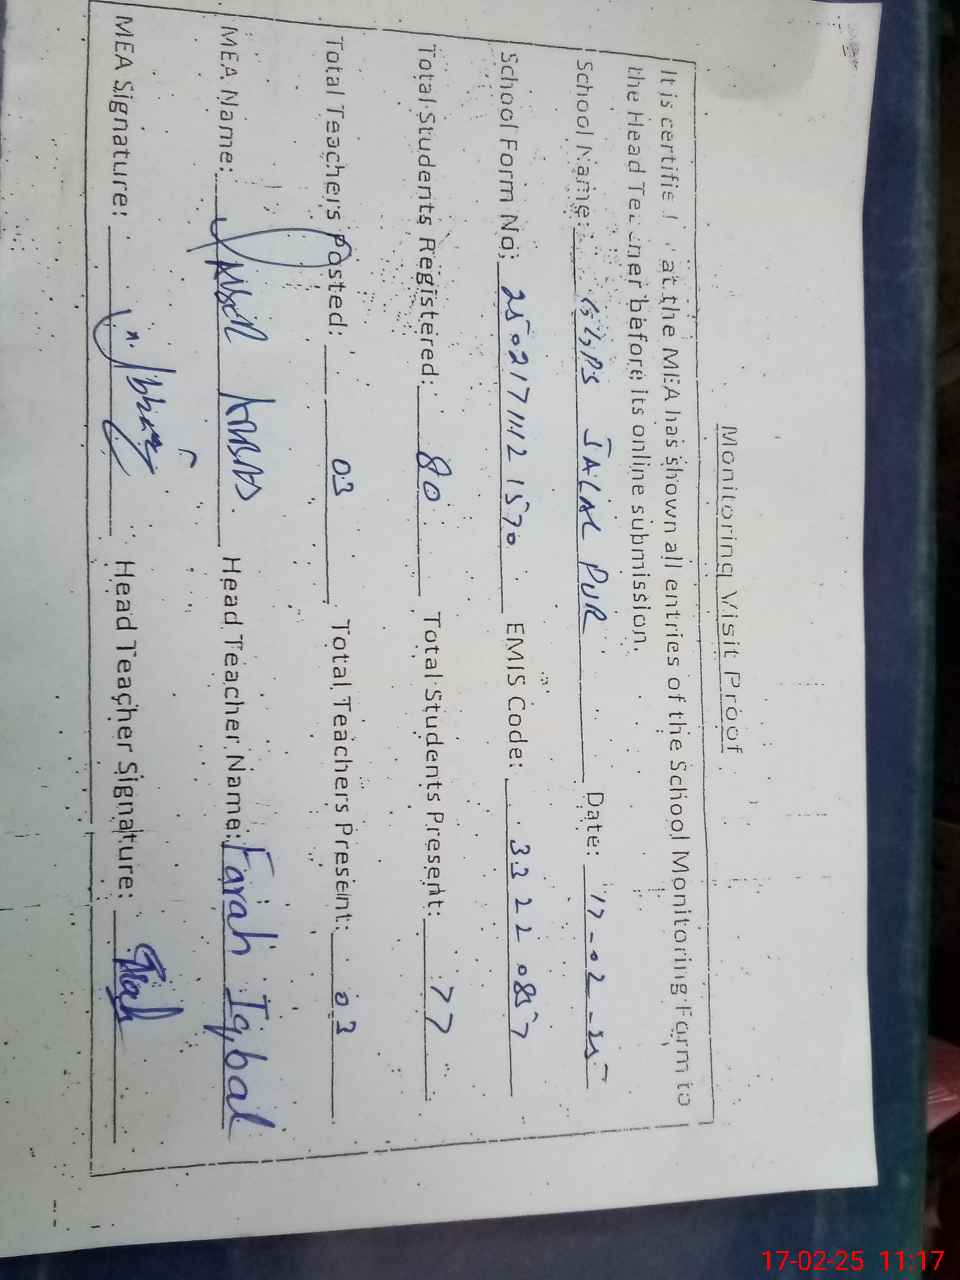 Monitoring Visit Proof
It is certified that the MEA has shown all entries of the School Monitoring Form to
the Head Teacher before its online submission.
School Name: GGPS JALAL PUR Date: 17-02-25
School Form No: 25021711121570 EMIS Code: 33220857
Total Students Registered: 80 Total Students Present: 77
Total Teachers Posted: 03 Total Teachers Present: 03
MEA Name: ABBAS Head Teacher Name: Farah Iqbal
MEA Signature: Head Teacher Signature: Farah
17-02-25 11:17